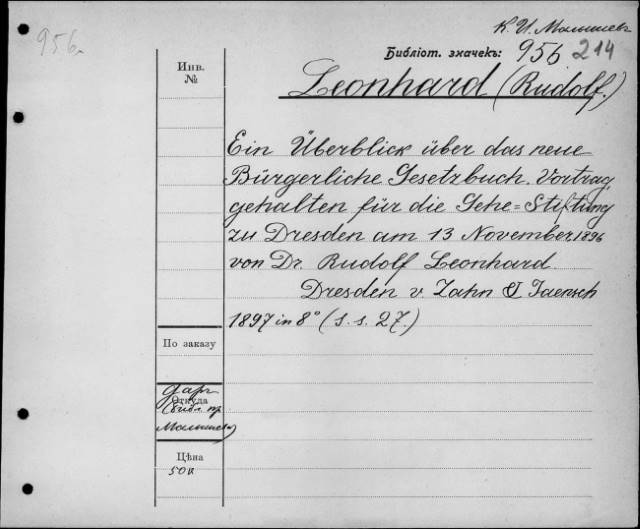 956.
К. И. Малышевъ
Библіот. значекъ: 956 214
Инв.
№
Leonhard (Rudolf.)
Ein Überblick über das neue
Bürgerliche Gesetzbuch. Vortrag,
gehalten für die Gehe=Stiftung
zu Dresden am 13 November 1896
von Dr. Rudolf Leonhard
Dresden v. Zahn & Jaensch
1897 in 8° (S. s. 27.)
По заказу
Откуда
даръ
(библ. пр
Малышева)
Цѣна
50 к